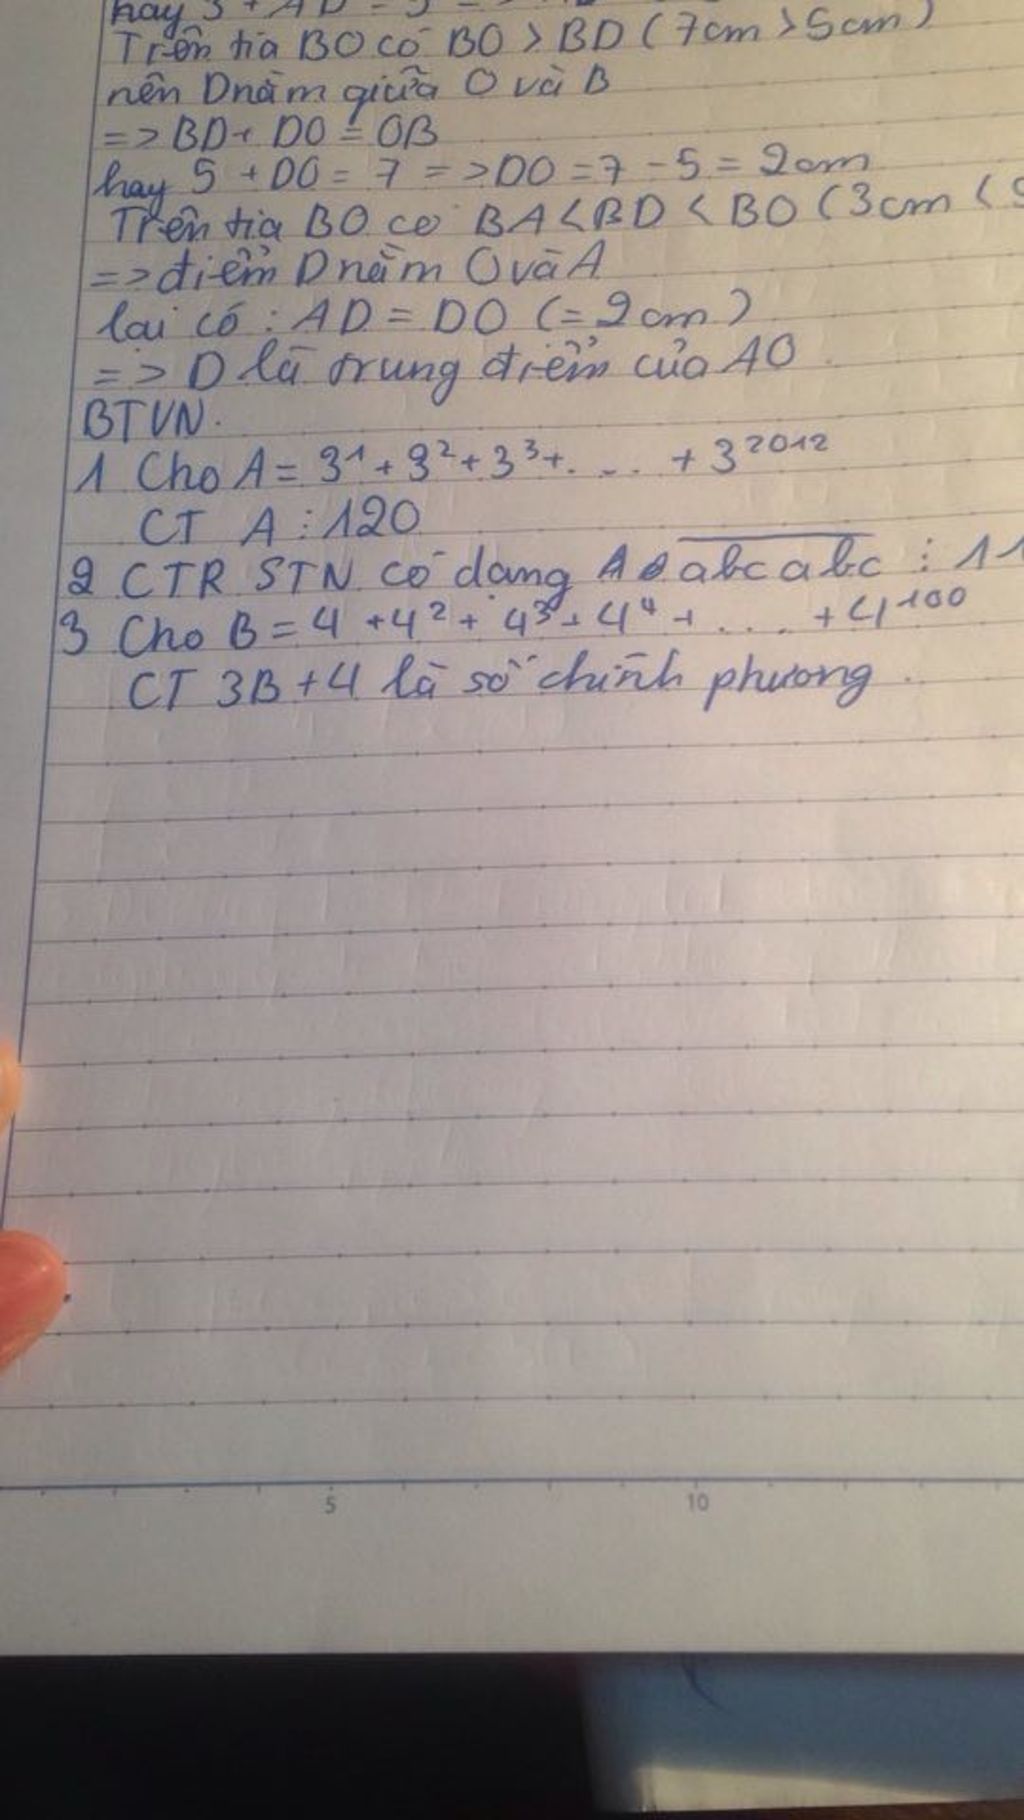 hay 3 + AD = 5
Trên tia BO có BO > BD (7cm > 5cm)
nên D nằm giữa O và B
=> BD + DO = OB
hay 5 + DO = 7 => DO = 7 - 5 = 2cm
Trên tia BO có BA < BD < BO (3cm <
=> điểm D nằm O và A
lại có : AD = DO (= 2cm)
=> D là trung điểm của AO
BTVN.
1 Cho A = 3¹ + 3² + 3³ + .... + 3²⁰¹²
CT A ⋮ 120
2 CTR STN có dạng abcabc ⋮ 11
3 Cho B = 4 + 4² + 4³ + 4⁴ + .... + 4¹⁰⁰
CT 3B + 4 là số chính phương
5 10